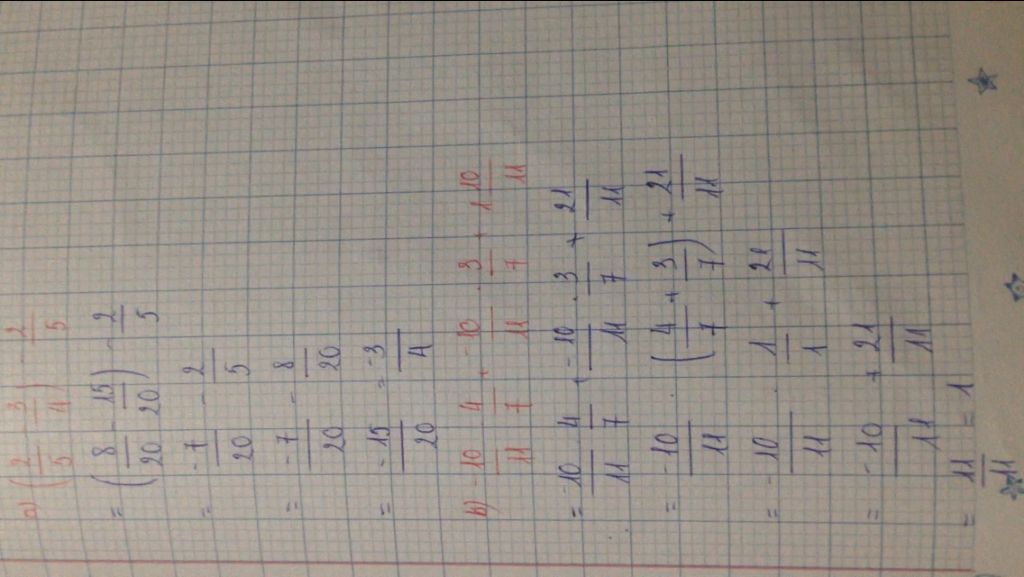 a) (2/5 - 3/4) - 2/5
= (8/20 - 15/20) - 2/5
= -7/20 - 2/5
= -7/20 - 8/20
= -15/20 = -3/4
b) -10/11 . 4/7 + -10/11 . 3/7 + 1 10/11
= -10/11 . 4/7 + -10/11 . 3/7 + 21/11
= -10/11 (4/7 + 3/7) + 21/11
= -10/11 . 1/1 + 21/11
= -10/11 + 21/11
= 11/11 = 1